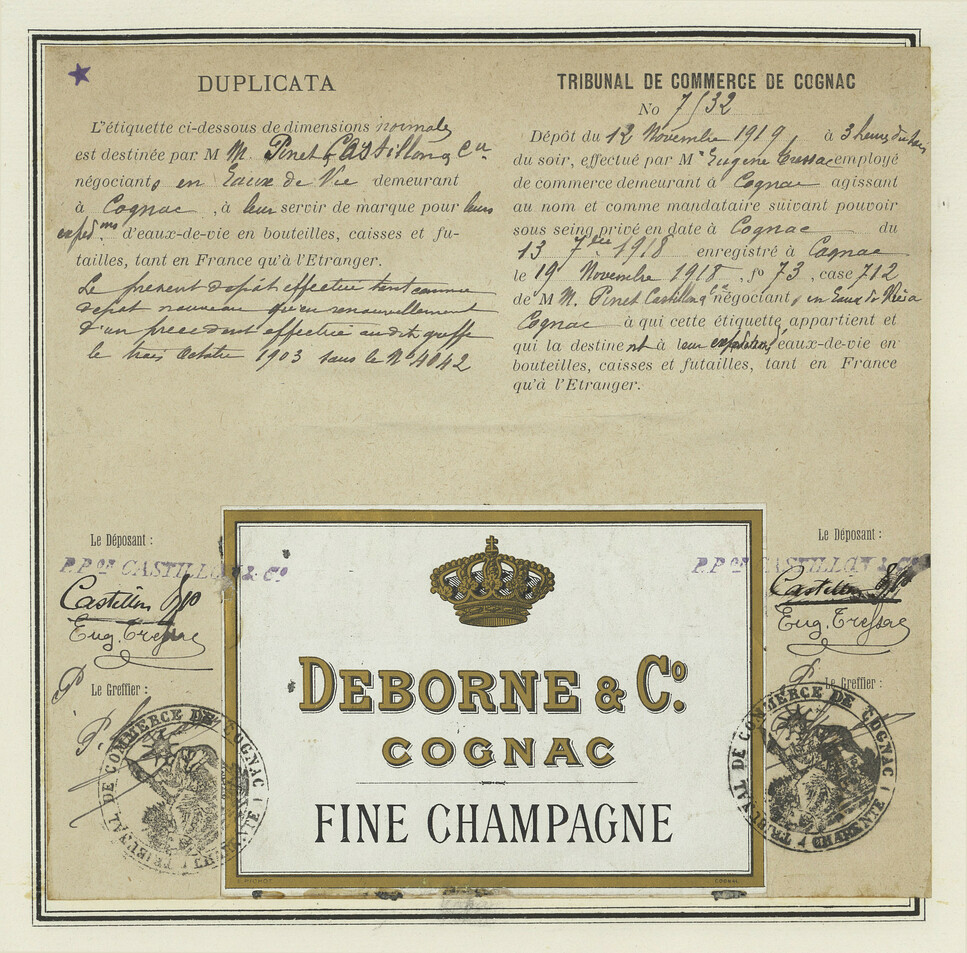 DUPLICATA
L'étiquette ci-dessous de dimensions normales
est destinée par M M. Pinet Castillon & Cie
négociants en Eaux de Vie demeurant
à Cognac, à leur servir de marque pour leurs
expéd.ons d'eaux-de-vie en bouteilles, caisses et fu-
tailles, tant en France qu'à l'Etranger.
Le présent dépôt effectué tant comme
dépôt nouveau qu'en renouvellement
d'un précédent effectué audit greffe
le trois Octobre 1903 sous le No 4042
TRIBUNAL DE COMMERCE DE COGNAC
No 7/32
Dépôt du 12 Novembre 1919, à 3 heures
du soir, effectué par M Eugène employé
de commerce demeurant à Cognac agissant
au nom et comme mandataire suivant pouvoir
sous seing privé en date à Cognac du
13 7bre 1918 enregistré à Cognac
le 19 Novembre 1918, fo 73, case 712
de M M. Pinet Castillon & Cie négociants en Eaux de Vie à
Cognac à qui cette étiquette appartient et
qui la destinent à leurs expéditions d'eaux-de-vie en
bouteilles, caisses et futailles, tant en France
qu'à l'Etranger.
Le Déposant :
P.Pon CASTILLON & Co
Castillon
Eug.
Le Greffier :
TRIBUNAL DE COMMERCE DE COGNAC (CHARENTE)
DEBORNE & Co.
COGNAC
FINE CHAMPAGNE
COGNAC
Le Déposant :
P.Pon CASTILLON & Co
Castillon
Eug.
Le Greffier :
TRIBUNAL DE COMMERCE DE COGNAC (CHARENTE)